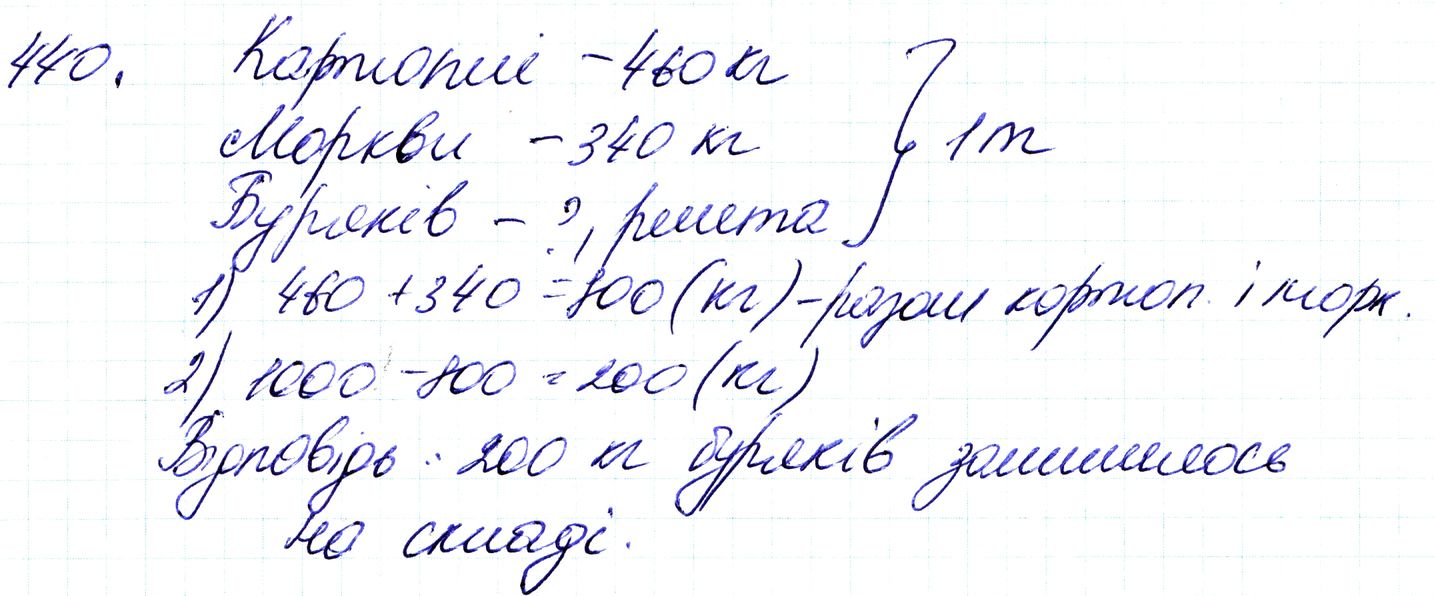 440. Картоплі - 460 кг
Моркви - 340 кг } 1 т
Буряків - ?, решта
1) 460 + 340 = 800 (кг) - разом картоп. і морк.
2) 1000 - 800 = 200 (кг)
Відповідь: 200 кг буряків залишилось
на складі.